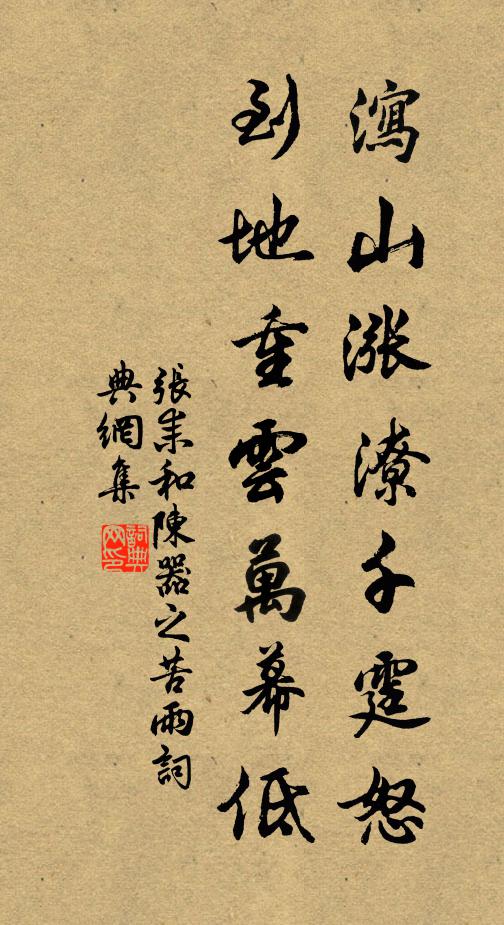 瀉山漲潦千霆怒
到地重雲萬幕低
張耒和陳器之苦雨詞
典網集
詞典網印